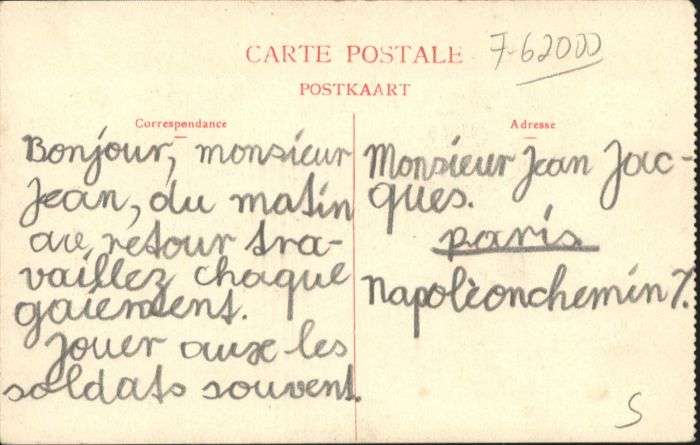 CARTE POSTALE
7-62000
POSTKAART
Correspondance
Bonjour, monsieur
Jean, du matin
au retour tra-
vaillez chaque
gaiement.
Jouer auxe les
soldats souvent.
Adresse
Monsieur Jean Jac-
ques.
paris
Napolèonchemin 7.
S